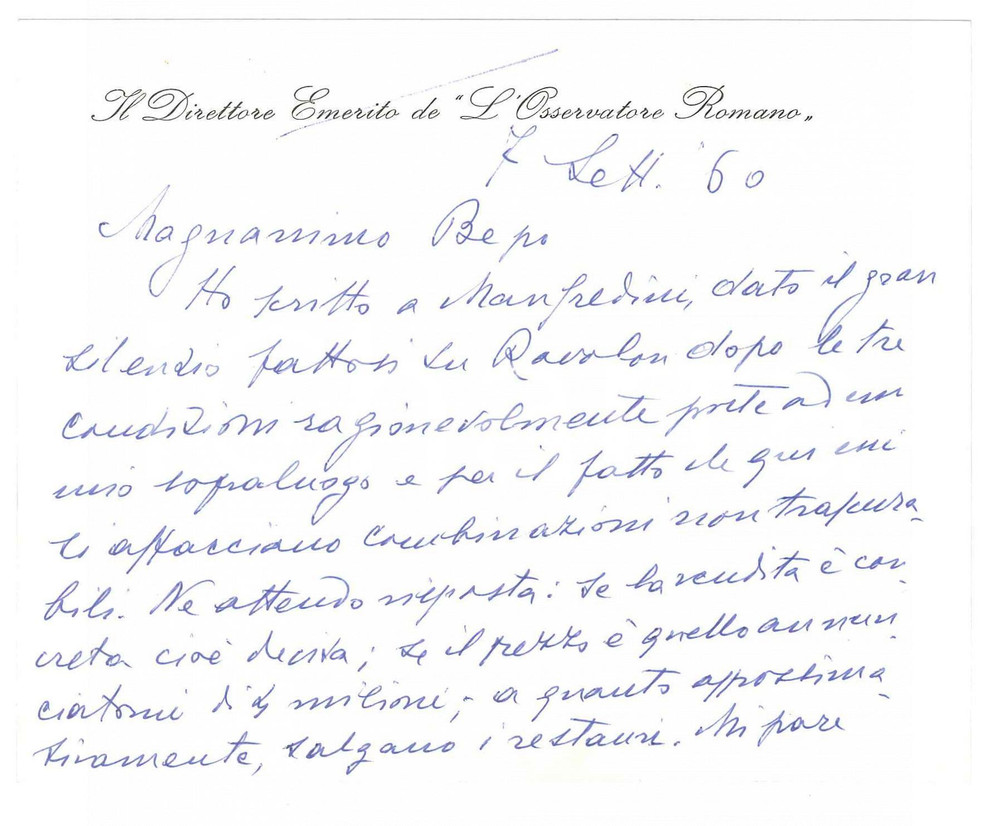 Il Direttore Emerito de "L'Osservatore Romano„
7 Sett. '60
Magnanimo Bepo
Ho scritto a Manfredini, dato il gran
silenzio fattosi su Rovolon dopo le tre
condizioni ragionevolmente poste ad un
mio sopraluogo e per il fatto che qui mi
si affacciano combinazioni non trascura-
bili. Ne attendo risposta: se la vendita è con-
creta cioè decisa; se il prezzo è quello annun-
ciatomi di 4 milioni; a quanto approssima-
tivamente, salgano i restauri. Mi pare